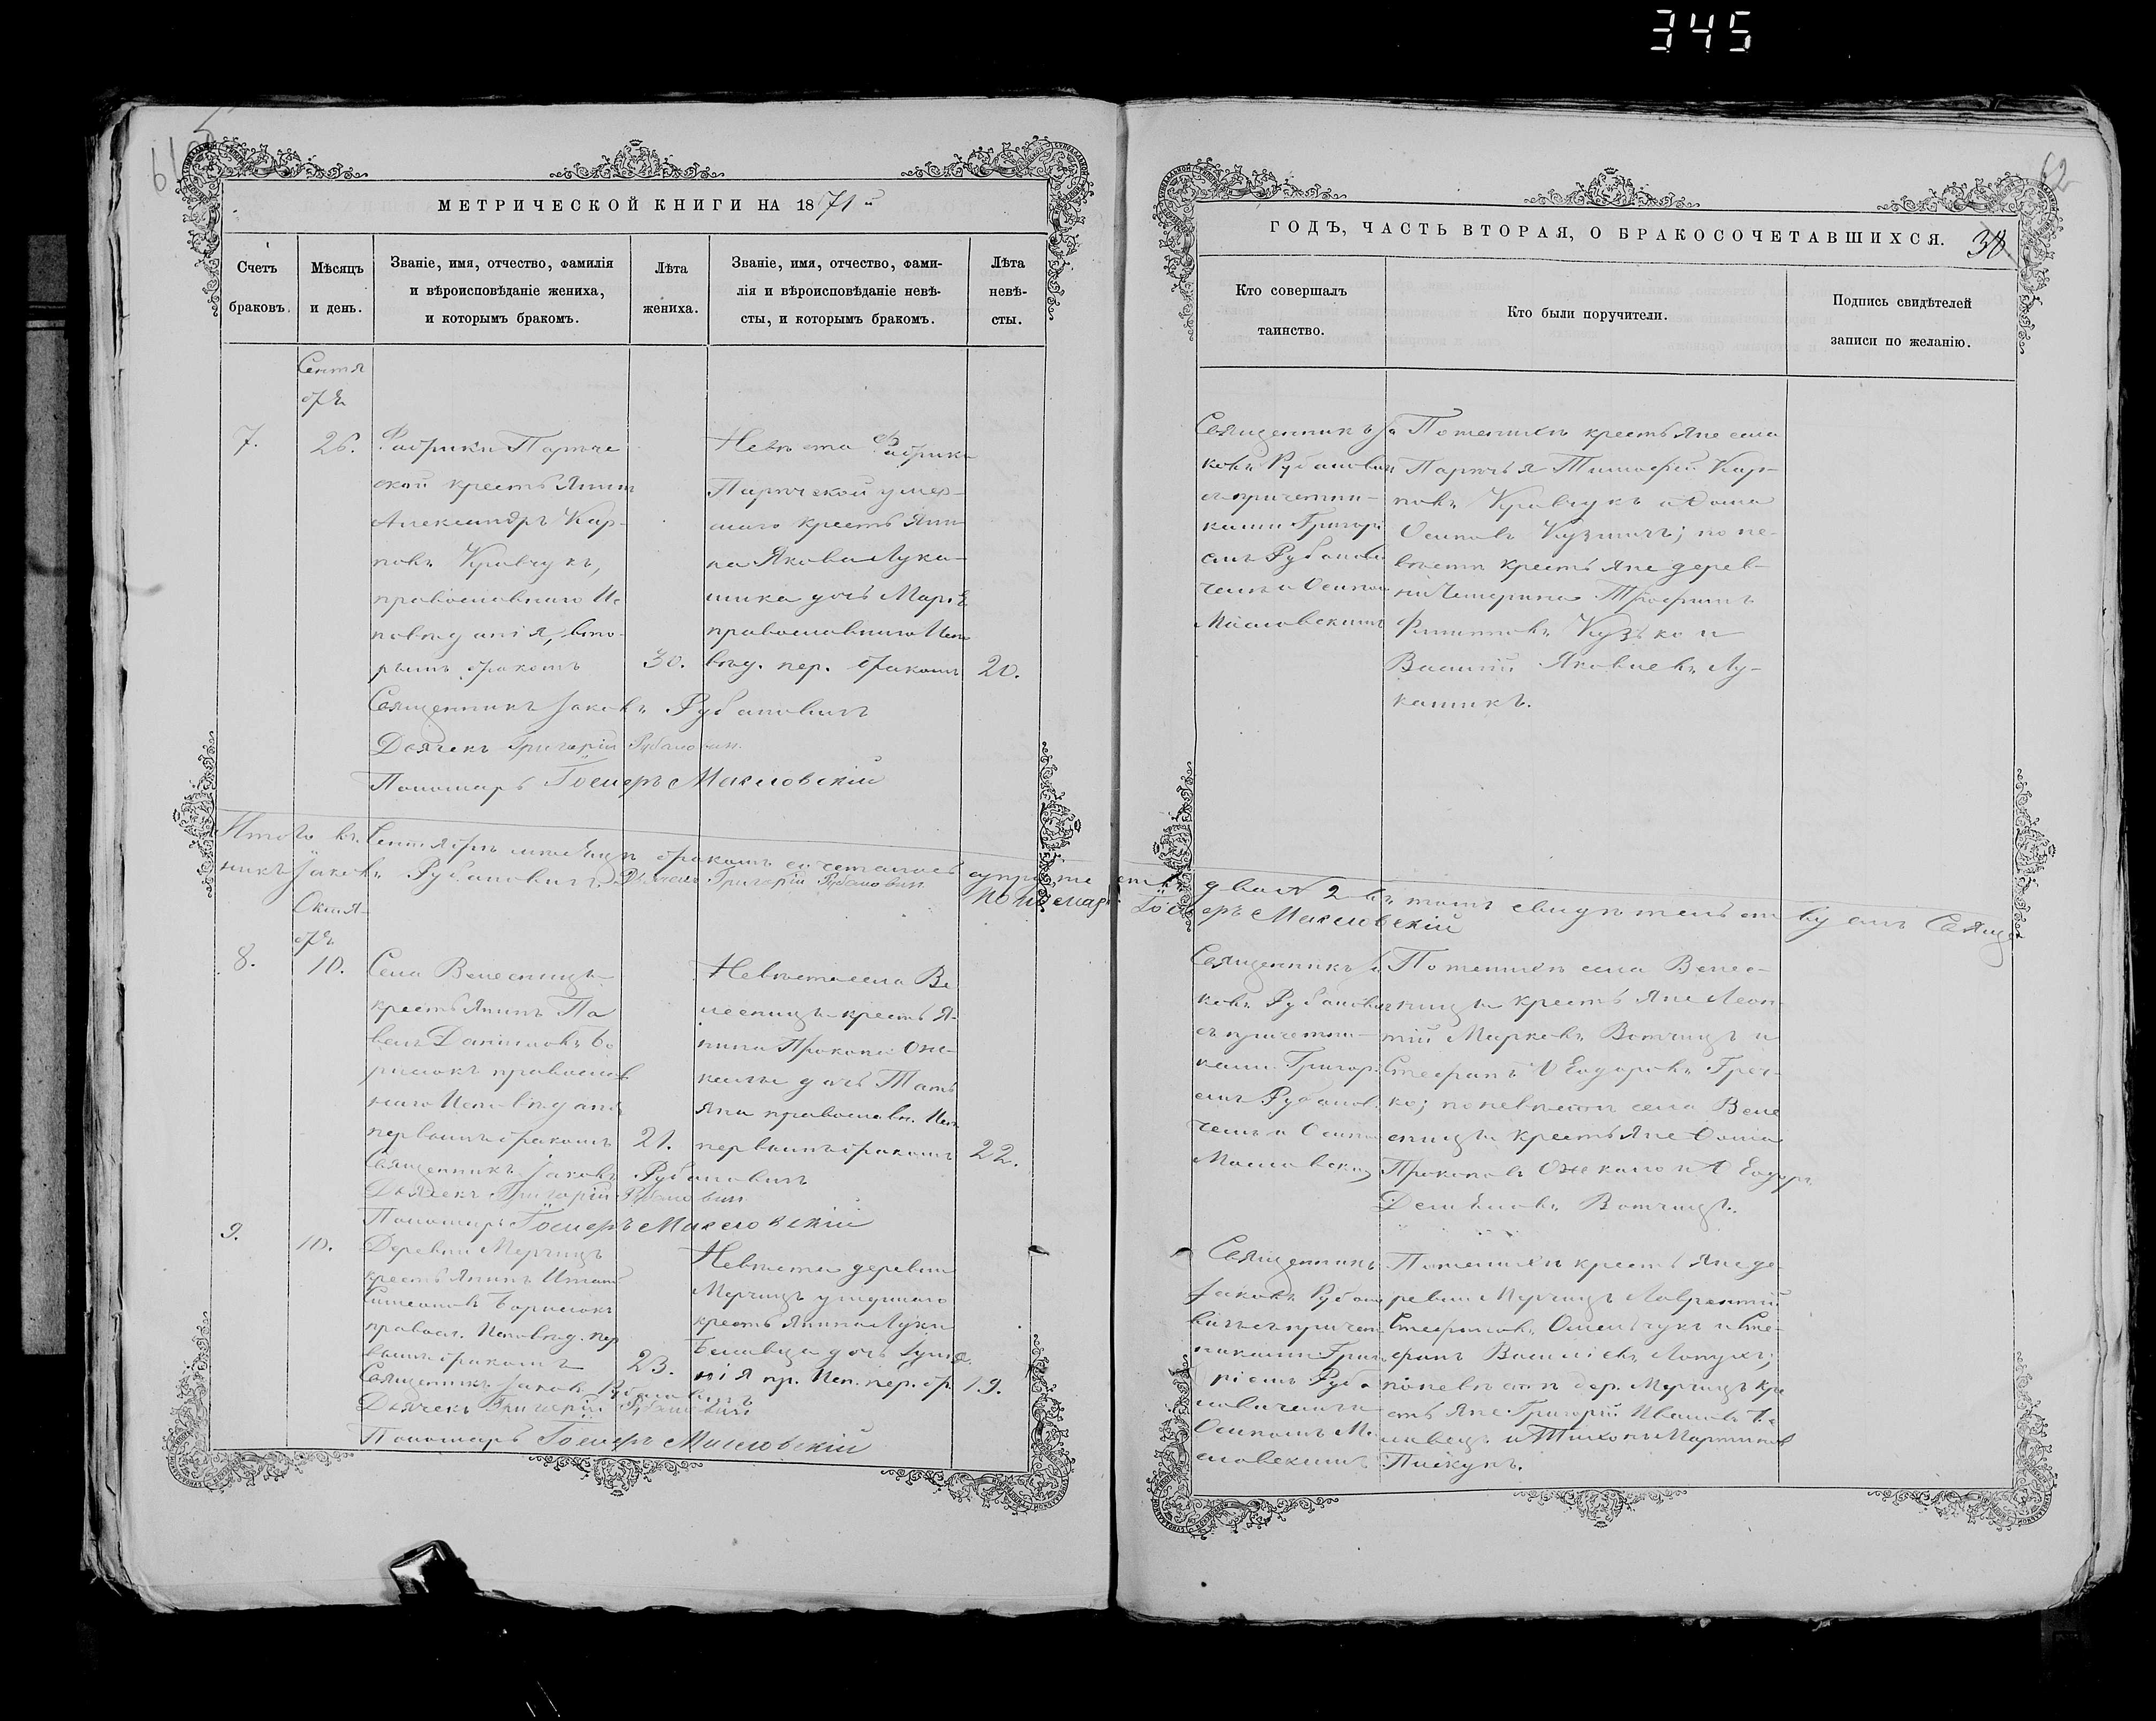 345
62
МЕТРИЧЕСКОЙ КНИГИ НА 1871й
Счетъ браковъ.
Мѣсяцъ и день.
Званіе, имя, отчество, фамилія
и вѣроисповѣданіе жениха,
и которымъ бракомъ.
Лѣта жениха.
Званіе, имя, отчество, фами-
лія и вѣроисповѣданіе невѣ-
сты, и которымъ бракомъ.
Лѣта невѣ-
сты.
Сентя
брь
7.
26.
Фабрики Парѣче
ской крестьянинъ
Александръ Кар-
повъ Кравчукъ,
православнаго Ис
повѣданія, вто-
рымъ бракомъ
30.
Невѣста фабрики
Парѣческой умер-
шаго крестьяни-
на Якова Лука-
шика дочь Марія
православнаго Испо
вѣд. пер. бракомъ
20.
Священникъ Іаковъ Рубановичъ
Дьячекъ Григорій Рубановичъ
Пономарь Іосифъ Масловскій
Итого въ Сентябрѣ мѣсяцѣ бракомъ сочеталось
никъ Іаковъ Рубановичъ. Дьячекъ Григорій Рубановичъ
Пономарь
Октя-
брь
8.
10.
Села Велесницы
крестьянинъ Па
велъ Даниловъ Бо
рисюкъ православ
наго Исповѣданія
первымъ бракомъ
21.
Невѣста села Ве
лесницы крестья-
нина Прокопа
дочь Тать
яна православн. Исп
первымъ бракомъ
22.
Священникъ Іаковъ Рубановичъ
Дьячекъ Григорій Рубановичъ
Пономарь Іосифъ Масловскій
9.
10.
Деревни Мерчицъ
крестьянинъ
Симеоновъ Борисюкъ
правосл. Исповѣд. пер
вымъ бракомъ
23.
Невѣста деревни
Мерчицъ умершаго
крестьянина Луки
дочь
нія пр. Исп. пер. бр.
19.
Священникъ Іаковъ Рубановичъ
Дьячекъ Григорій Рубановичъ
Пономарь Іосифъ Масловскій
ГОДЪ, ЧАСТЬ ВТОРАЯ, О БРАКОСОЧЕТАВШИХСЯ.
38
Кто совершалъ
таинство.
Кто были поручители.
Подпись свидѣтелей
записи по желанію.
Священникъ Іа
ковъ Рубановичъ
съ причетни-
ками Григорі
емъ Рубанови
чемъ и Осипом
Масловскимъ
По женихѣ крестьяне села
Парѣчья Тимофей Кар-
повъ Кравчукъ и Фома
Осиповъ Кузмичъ; по не-
вѣстѣ крестьяне дерев-
ни Чемерина Трофимъ
Филиповъ Кузько и
Василій Яковлевъ Лу-
кашикъ.
два № 2 въ томъ свидѣтельствуемъ Свяще
Масловскій
Священникъ Іа
ковъ Рубанович
съ причетни-
ками Григорі
емъ Рубанови
чемъ и Осипом
Масловским
По женихѣ села Велес-
ницы крестьяне Леон-
тій Марковъ Вотчицъ и
Стефанъ Ѳеодоровъ Греч-
ко; по невѣстѣ села Веле
сницы крестьяне Фома
Прокоповъ и Ѳеодоръ
Вотчицъ.
Священникъ
Іаковъ Рубано
вичъ съ причет
никами Григо
ріемъ Руба
новичемъ и
Осипомъ Ма
словскимъ
По женихѣ крестьяне де
ревни Мерчицъ Лаврентій
Стефановъ Омельчукъ и Сте-
фанъ Василіевъ Лопухъ;
по невѣстѣ дер. Мерчицъ кре
стьяне Григорій Ивановъ
и Тихонъ Мартинов
Пискунъ.